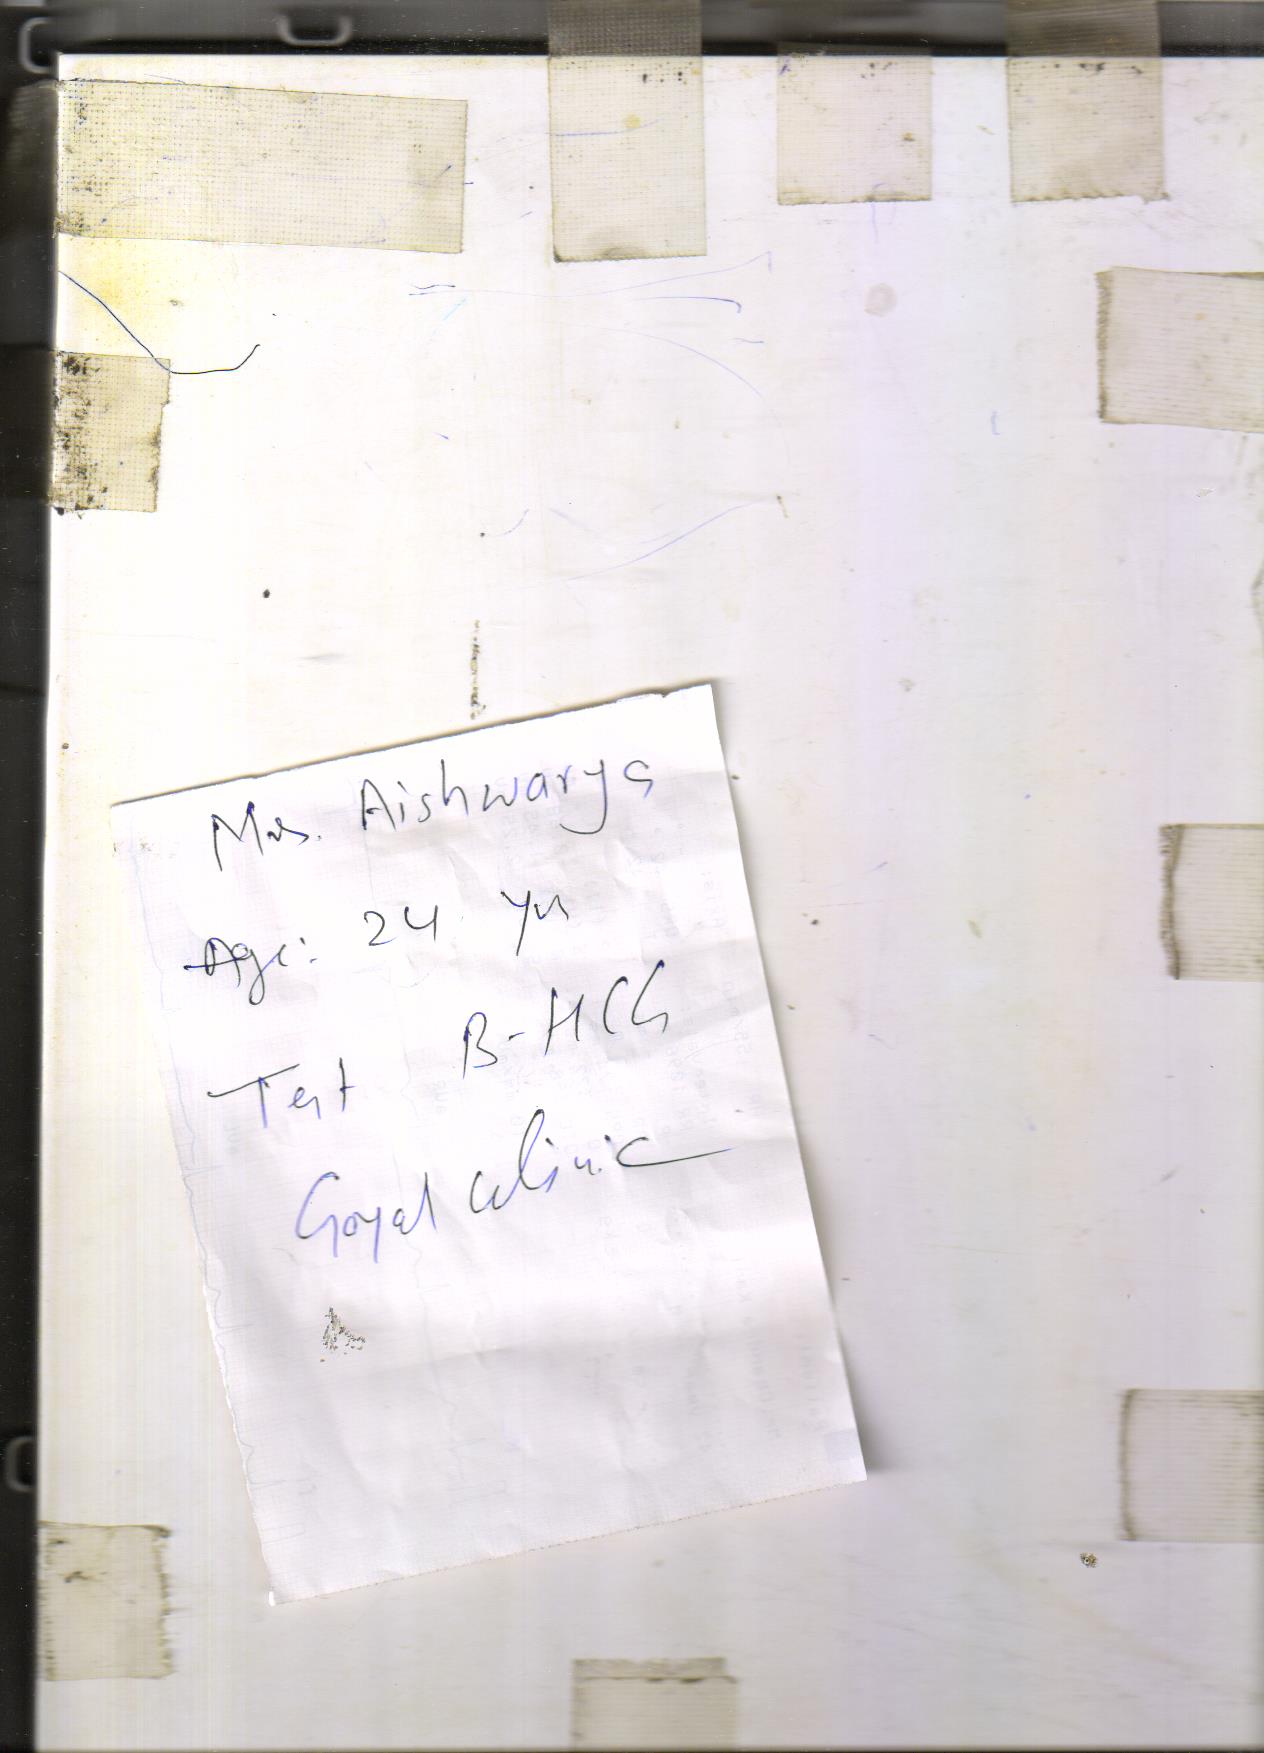 Mrs. Aishwarya
Age: 24 yrs
Test B-HCG
Goyal clinic